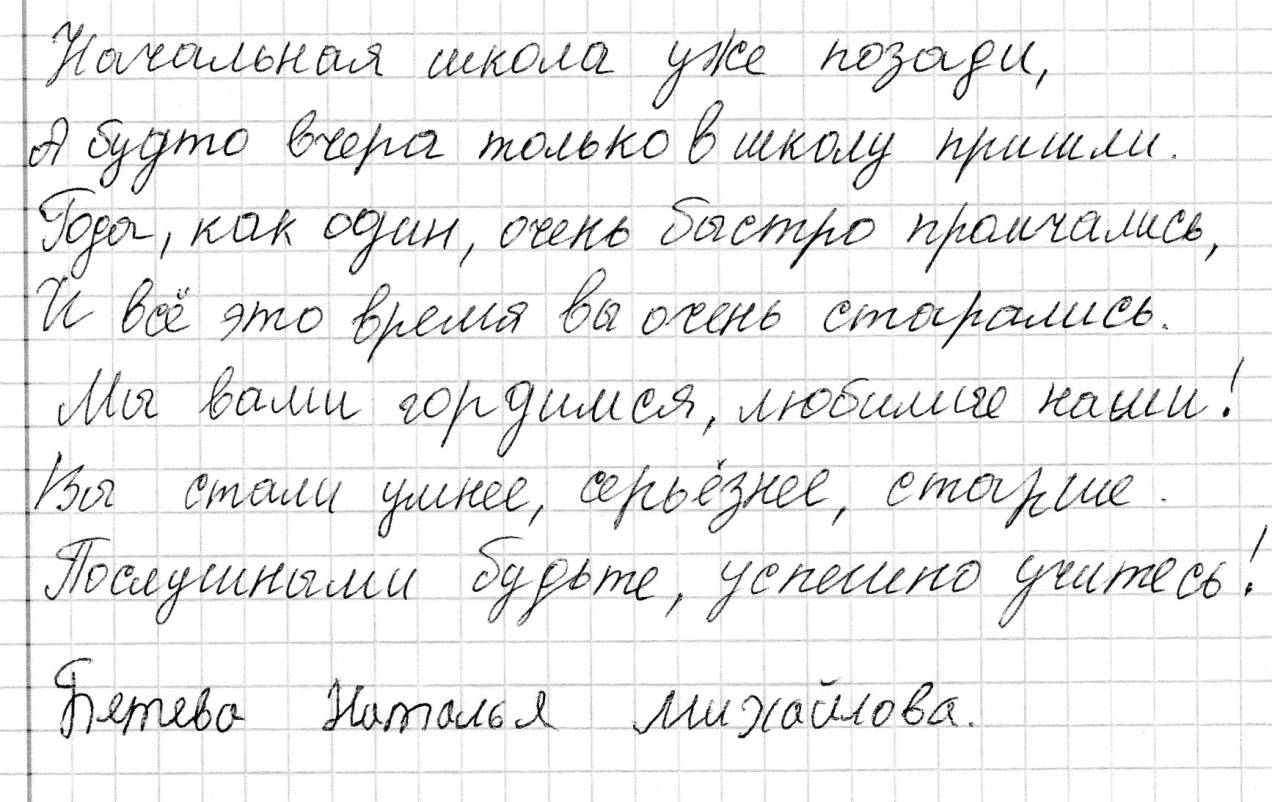 Начальная школа уже позади,
А будто вчера только в школу пришли.
Года, как один, очень быстро промчались,
И всё это время вы очень старались.
Мы вами гордимся, любимые наши!
Вы стали умнее, серьёзнее, старше.
Послушными будьте, успешно учитесь!
Наталья Михайлова.